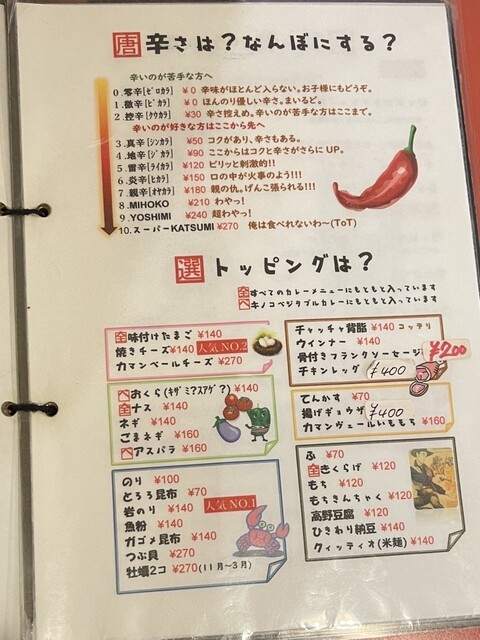 唐 辛さは？なんぼにする？
辛いのが苦手な方へ
0.零辛[ゼロカラ] ¥0 辛味がほとんど入らない。お子様にもどうぞ。
1.微辛[ビカラ] ¥0 ほんのり優しい辛さ。まいるど。
2.控辛[クウカラ] ¥30 辛さ控えめ。辛いのが苦手な方はここまで。
辛いのが好きな方はここから先へ
3.真辛[シンカラ] ¥50 コクがあり、辛さもある。
4.地辛[ジカラ] ¥90 ここからはコクと辛さがさらにUP。
5.雷辛[ライカラ] ¥120 ピリッと刺激的!!
6.炎辛[ヒカラ] ¥150 口の中が火事のよう!!!
7.親辛[オヤカラ] ¥180 親の仇。げんこ張られる!!!
8.MIHOKO ¥210 わやっ!
9.YOSHIMI ¥240 超わやっ!
10.スーパーKATSUMI ¥270 俺は食べれないわ～(ToT)
選 トッピングは？
全 すべてのカレーメニューにもともと入っています
ベ キノコベジタブルカレーにもともと入っています
全 味付けたまご ¥140
焼きチーズ ¥140 人気NO.2
カマンベールチーズ ¥270
ベ おくら(ｷｻﾞﾐ?ｽｱｹﾞ?) ¥140
全 ナス ¥140
ネギ ¥140
ごまネギ ¥160
ベ アスパラ ¥160
のり ¥100
とろろ昆布 ¥70
岩のり ¥140 人気NO.1
魚粉 ¥140
ガゴメ昆布 ¥140
つぶ貝 ¥270
牡蠣2コ ¥270(11月～3月)
チャッチャ背脂 ¥140 コッテリ
ウインナー ¥140
骨付きフランクソーセージ ¥200
チキンレッグ ¥400
てんかす ¥70
揚げギョウザ ¥400
カマンヴェールいももち ¥160
ふ ¥70
全 きくらげ ¥120
もち ¥120
もちきんちゃく ¥120
高野豆腐 ¥120
ひきわり納豆 ¥140
クィッティオ(米麺) ¥140